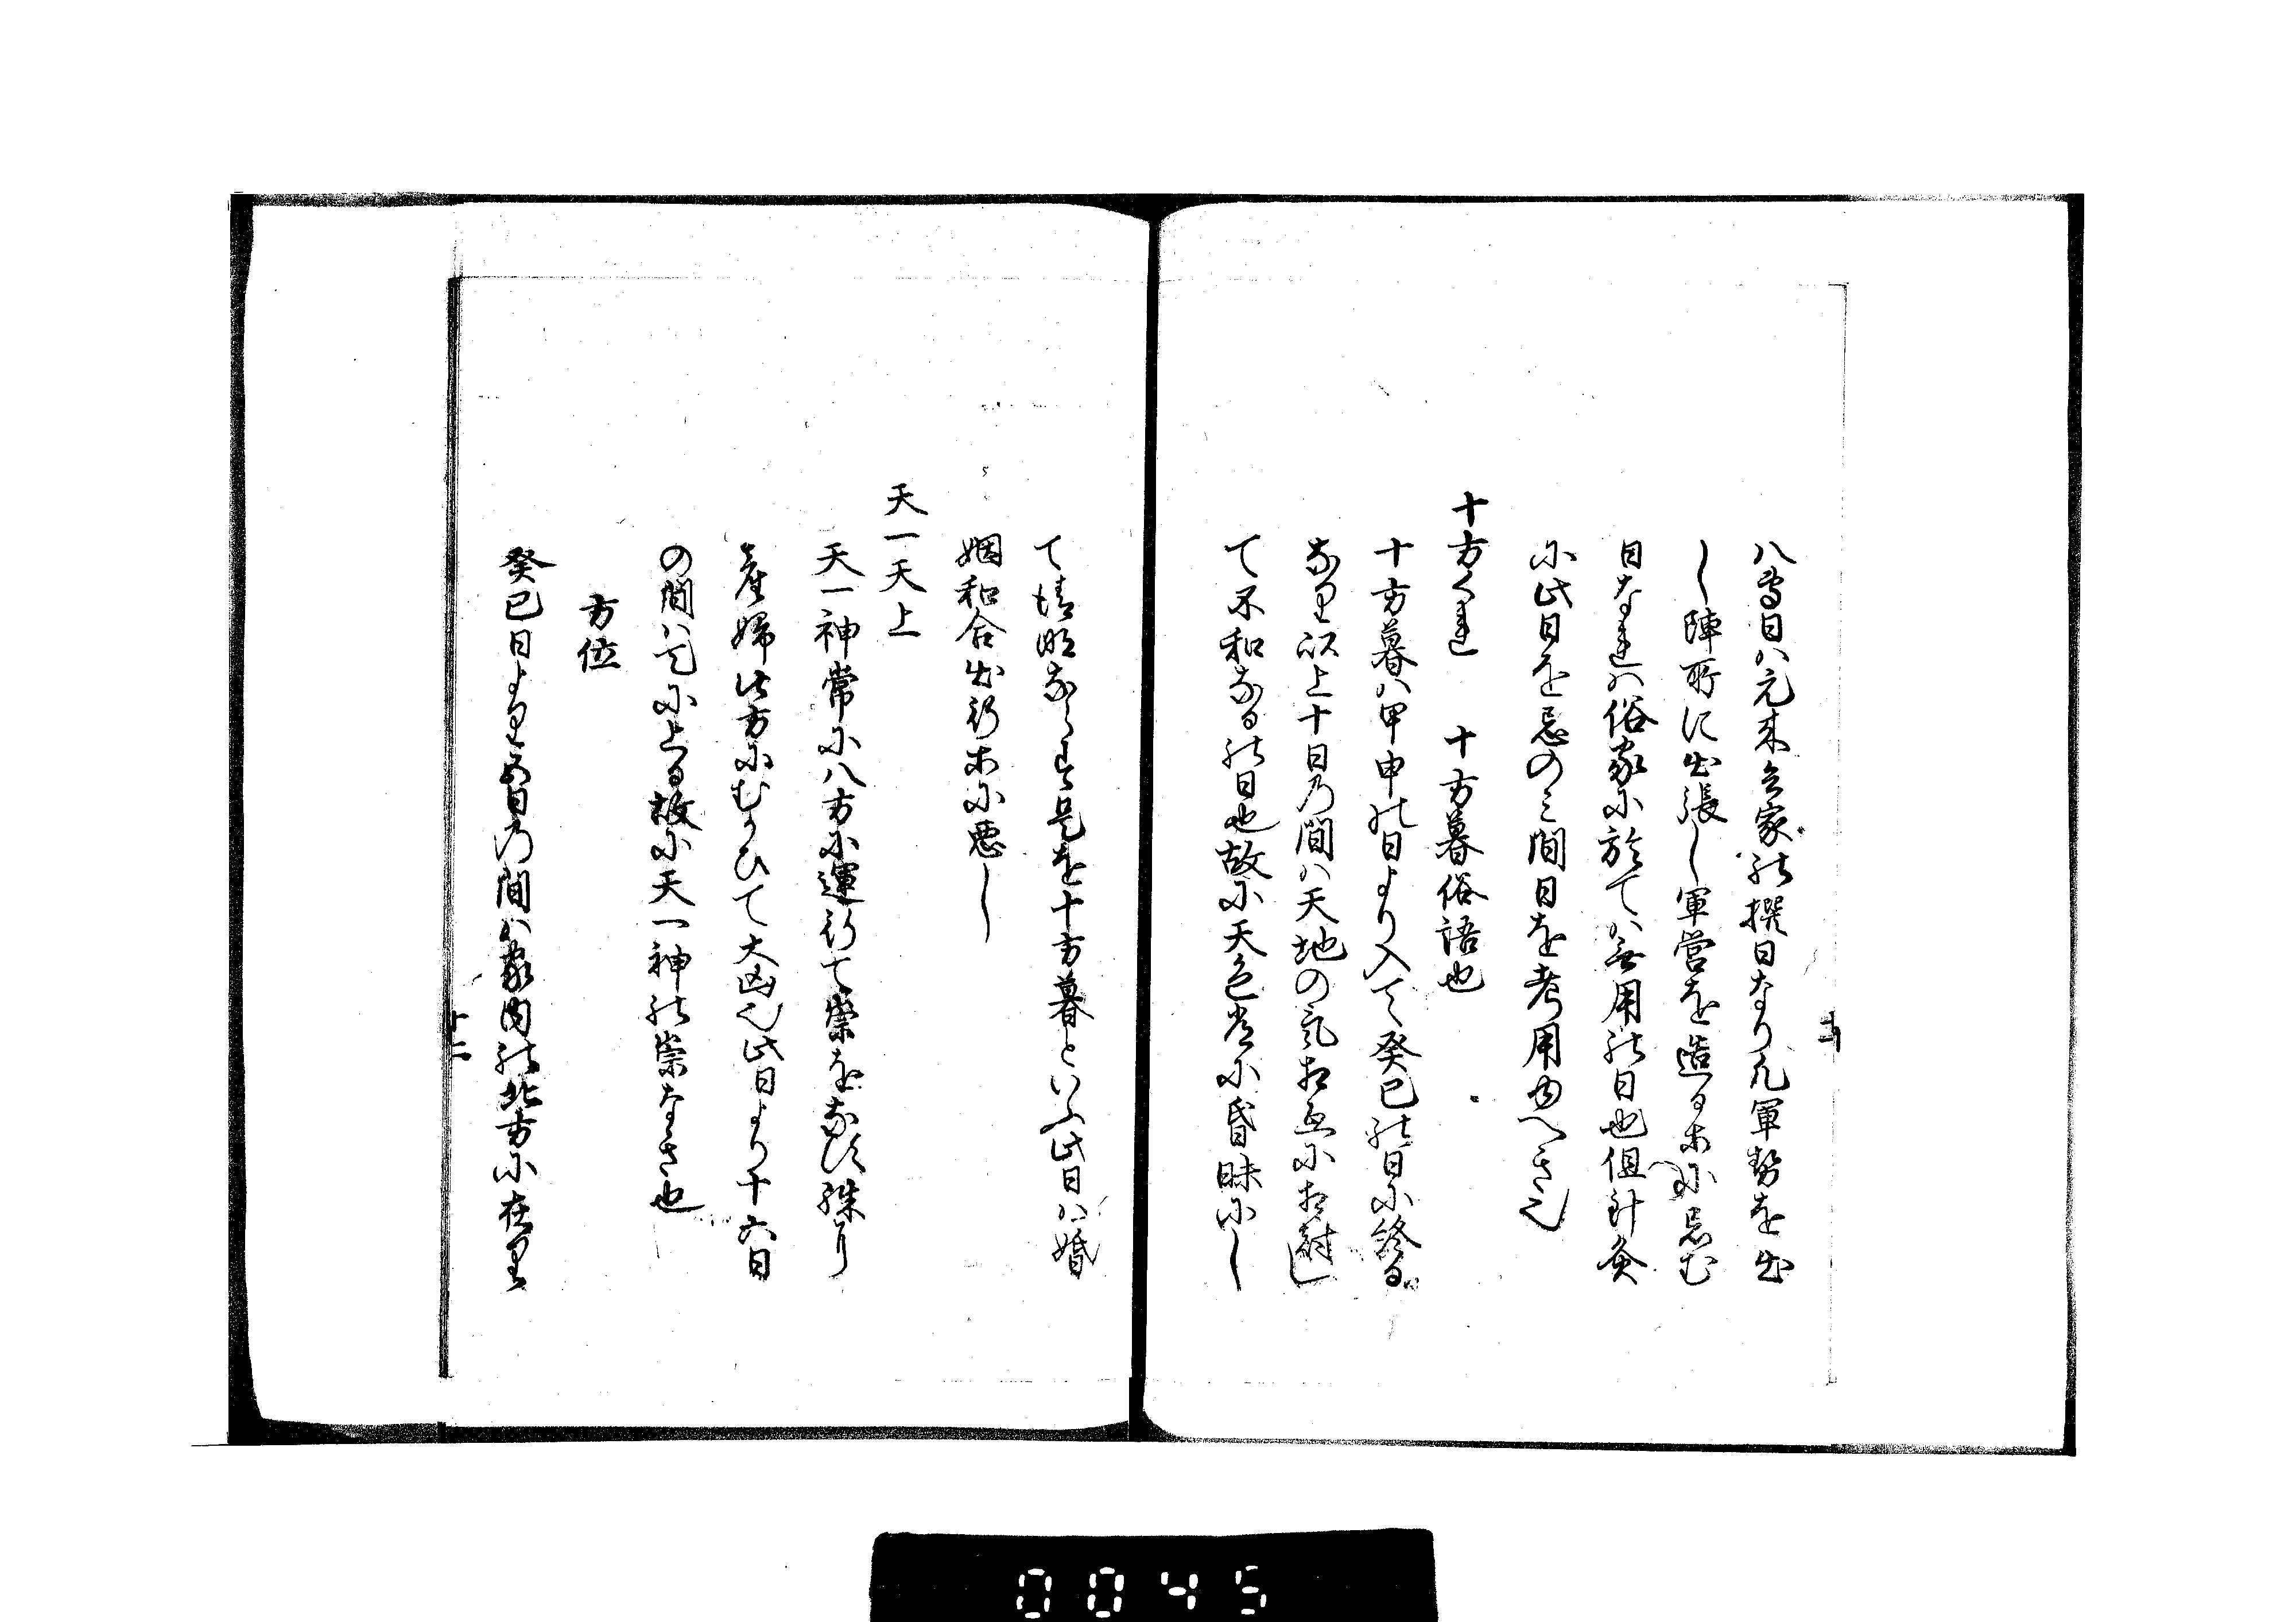 八専日ハ元来兵家の撰日なり凡軍勢を出
し陣所に出張し軍営を造る等に忌む
日なれハ俗家に於てハ無用の日也但針灸
に此日を忌のミ間日を考用ゆへき也
十方くれ　十方暮俗語也
十方暮ハ甲申の日より入て癸巳の日に終る
なり以上十日乃間ハ天地の気相互に相尅し
て不和なるの日也故に天色常に昏昧にし
て清明ならす是を十方暮といふ此日ハ婚
姻和合出行等に悪し
天一天上
天一神常に八方に運行て祟をなす殊り
産婦此方にむかひて大凶也此日より十六日
の間ハ天に上る故に天一神の祟なき也
方位
癸巳日より五日乃間ハ家内の北方に在り
十二
0045